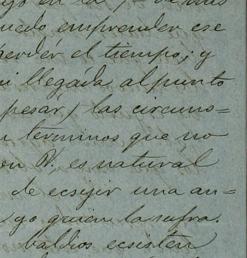 uedo emprender ese
perder el tiempo; y
i llegada al punto
pesar) las circuns-
n terminos que no
on V. es natural
de ecsijir una an-
yo quien la sufra.
baldios ecsisten